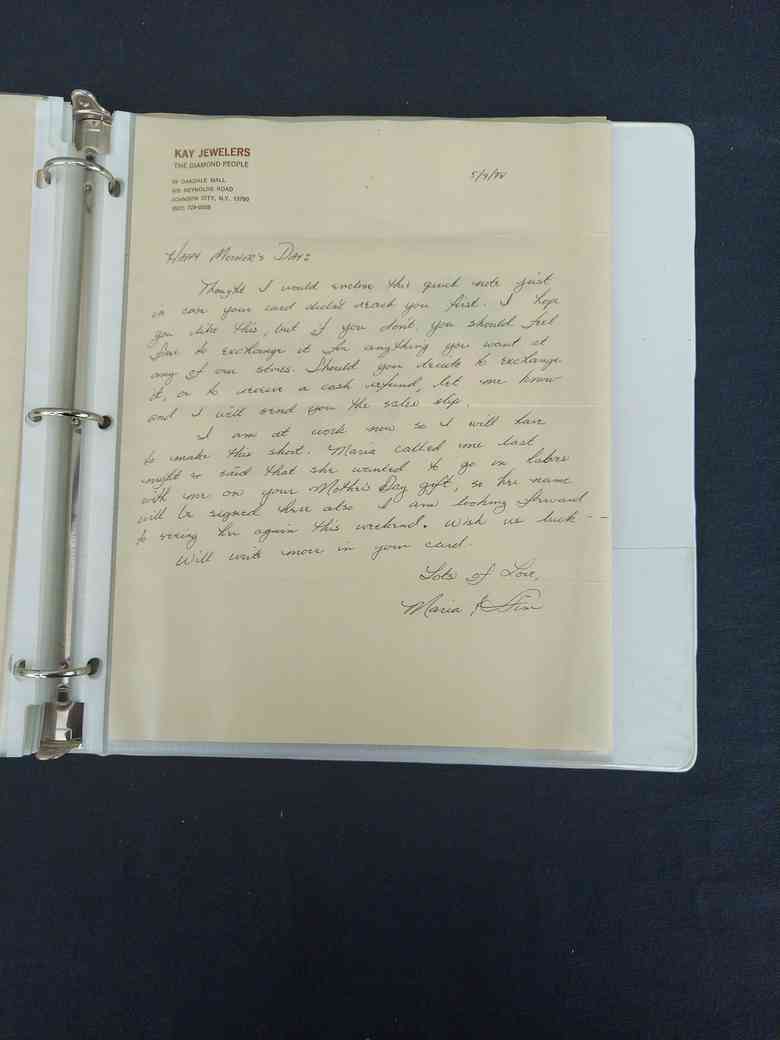 KAY JEWELERS
THE DIAMOND PEOPLE
OAKDALE MALL
REYNOLDS ROAD
JOHNSON CITY, N.Y. 13790
HAPPY MOTHER'S DAY:
Thought I would enclose this quick note just
in case your card didn't reach you first. I hope
you like this, but if you don't, you should feel
free to exchange it for anything you want at
any of our stores. Should you decide to exchange
it, or to receive a cash refund, let me know
and I will send you the sales slip.
I am at work now so I will have
to make this short. Maria called me last
night & said that she wanted to go in
with me on your Mother's Day gift, so her name
will be signed here also. I am looking forward
to seeing her again this weekend. Wish us luck --
Will write more in your card.
Lots of Love,
Maria &